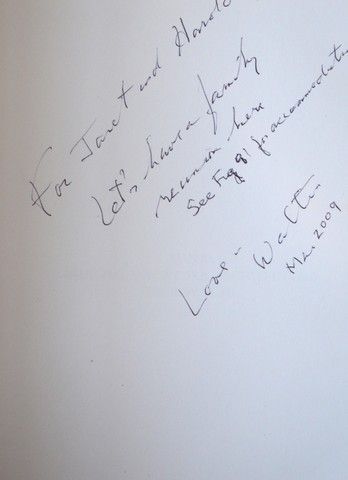 For Janet and Harold
Let's have a family
reunion here
See Fig 91 for accommodation
Love -
Walter
Mar 2009